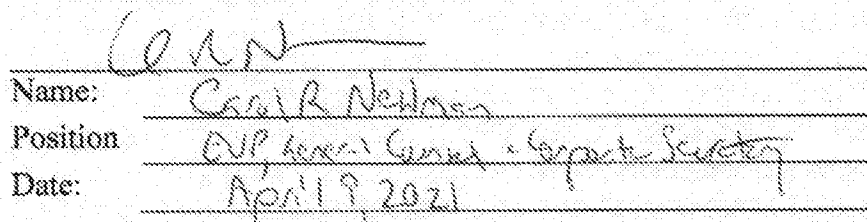 Name: Carol R Newman
Position EVP, General Counsel - Corporate Secretary
Date: April 9, 2021